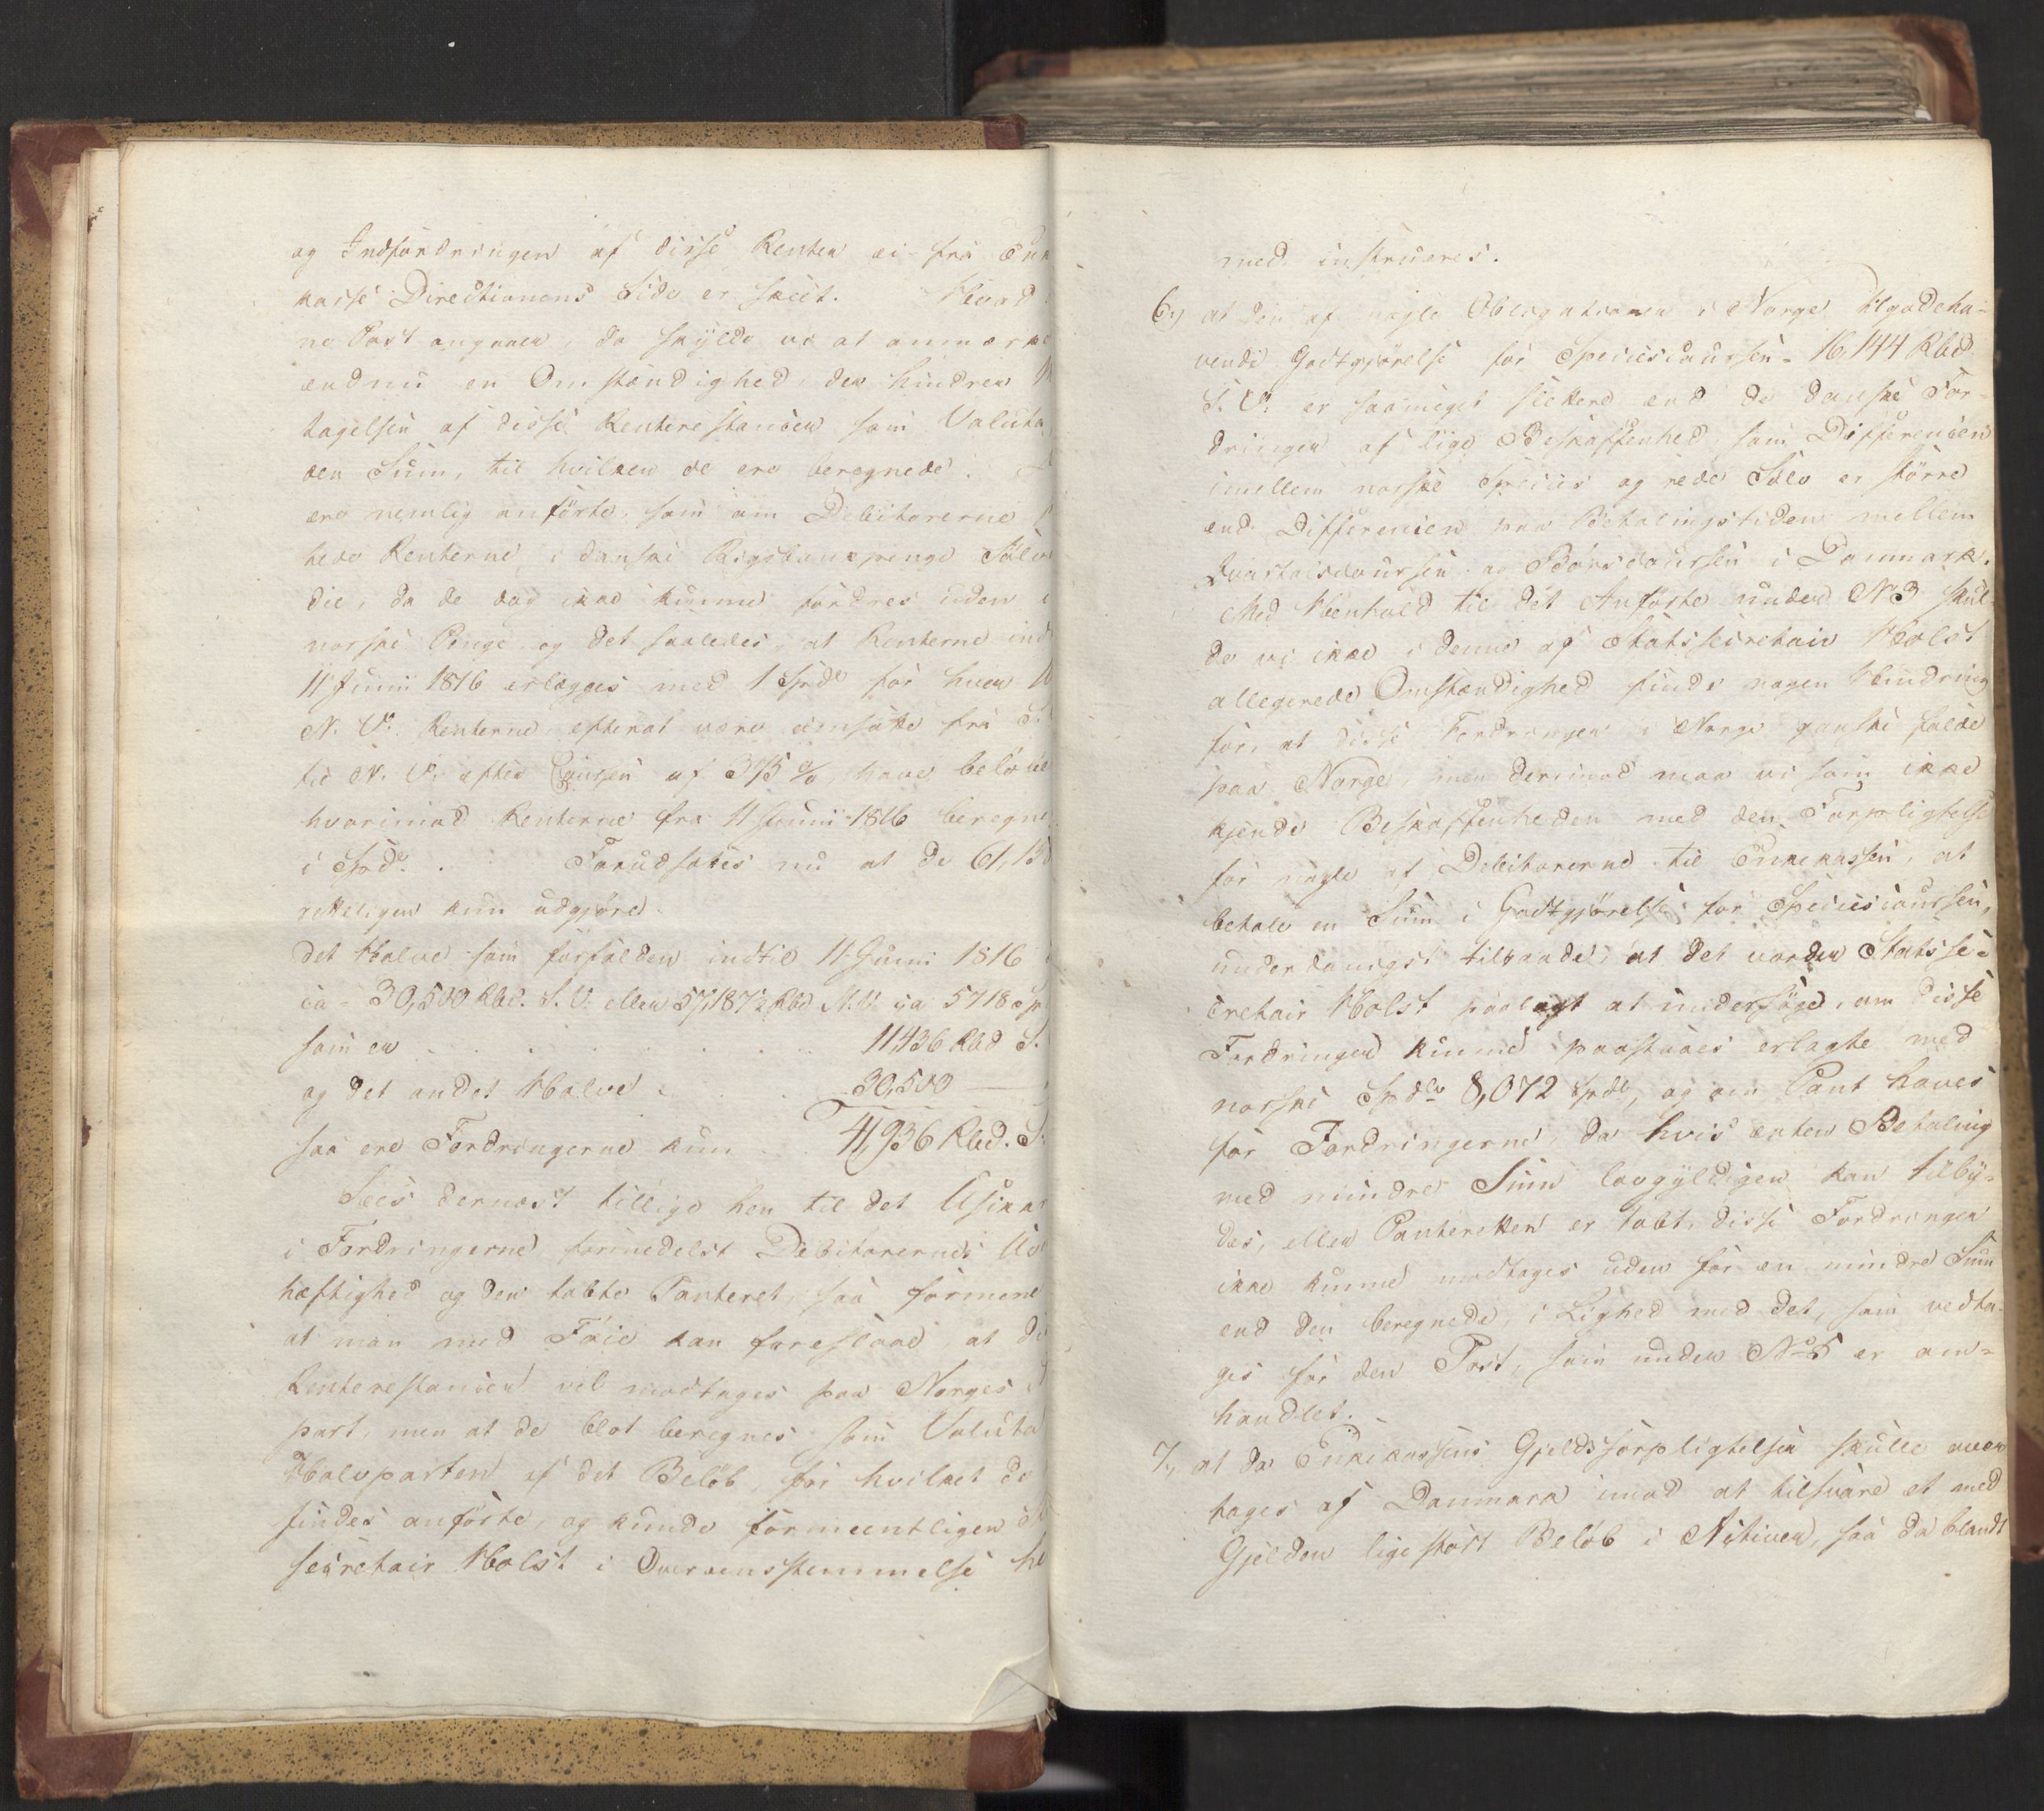 og Indfordringen af disse Renter ei fra Enk
kasse Directionens Side er skeet. Hvad
ne Post angaaer, da skylde vi at anmærke
endnu en Omstændighed, der hindrer
tagelsen af disse Renterestancer som Valuta
den Sum, til hvilken de ere beregnede.
ere nemlig anførte, som om Debitorerne
hede Renterne i danske Rigsbankpenge Sølv
die, da de dog ikke kunne fordres uden i
norske Penge og det saaledes, at Renterne ind
11 Junii 1816 erlægges med 1 Spd for hver
N. V. Renterne efterat være omsatte fra S.
til N. V. efter Coursen af 375 %, have beløbe
hvorimod Renterne fra 11 Junii 1816 beregne
i Spd. . Forudsættes nu at de 61,
retteligen kun udgjøre
det Halve som forfalden indtil 11 Junii 1816
ca 30,500 Rbd. S. V. eller 57,187½ Rbd N. V. ca 5718 Sp
som er . . . 11,436 Rbd S.
og det andet Halve . . . 30,500 —
saa ere Fordringerne kun . . 41,936 Rbd. S.
Sees dernæst tillige hen til det Usikk
i Fordringerne formedelst Debitorernes
hæftighed og den tabte Panteret, saa formene
at man med Føie kan foreslaae, at di
Renterestancer vel modtages paa Norges
part, men at de blot beregnes som Valuta
Halvparten af det Beløb, for hvilket de
findes anførte, og kunde formeentligen
secretair Holst i Overeensstemmelse he
med instrueres.
6.) at den af nogle Obligationer i Norge tilgodeha-
vende Godtgjørelse for Speciescoursen - 16,144 Rbd
S. V. er saameget sikkere end de danske For-
dringer af lige Beskaffenhed, som Differencen
imellem norske Species og rede Sølv er større
end Differencen paa Betalingstiden mellem
Qvartalscoursen og Børscoursen i Danmark.
Med Henhold til det Anførte under No 3 skul-
de vi ikke i denne af Statssecretair Holst
allegerede Omstændighed finde nogen Hindring
for, at disse Fordringer i Norge ganske falde
paa Norge, men derimod maa vi som ikke
kjende Beskaffenheden med den Forpligtelse
for nogle af Debitorerne til Enkekassen, at
betale en Sum i Godtgjørelse for Speciescoursen,
underdanigst tilraade, at det vorder Statsse-
cretair Holst paalagt at undersøge, om disse
Fordringer kunne paastaaes erlagte med
norske Spdlr 8,072 Spdl, og om Pant haves
for Fordringerne, da hvis enten Betaling
med mindre Sum lovgyldigen kan tilby-
des, eller Panteretten er tabt, disse Fordringer
ikke kunne modtages uden for en mindre Sum
end den beregnede, i Lighed med det, som vedta-
ges for den Post, som under No 5 er om-
handlet.
7, at da Enkekassens Gjeldsforpligtelser skulle over
tages af Danmark imod at tilsvare et med
Gjelden lige stort Beløb i Activer, saa da blandt